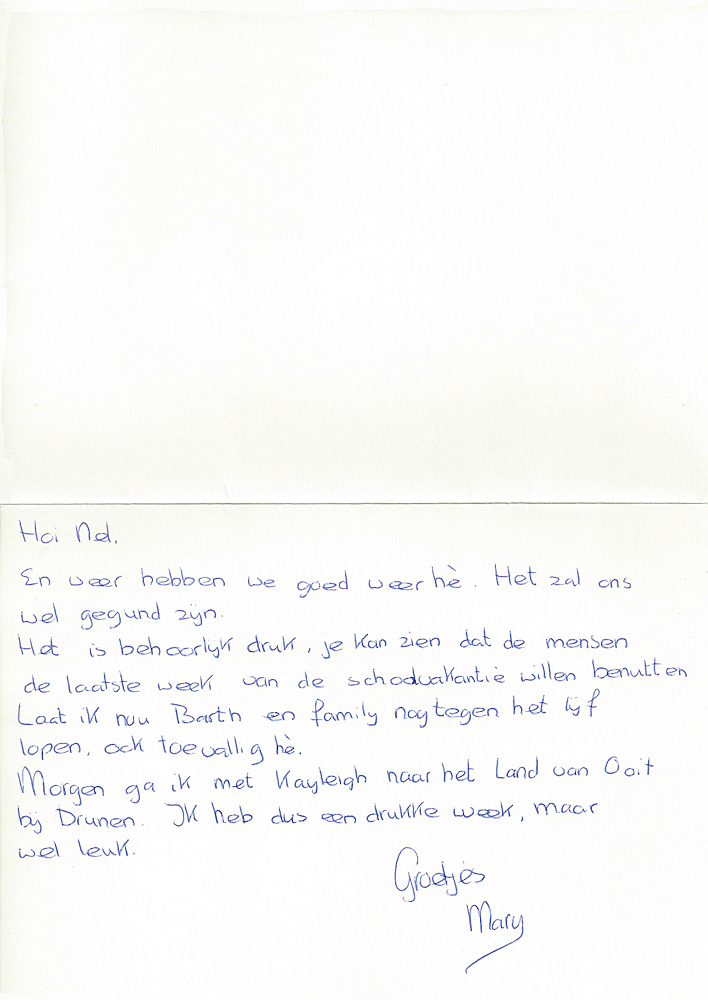 Hoi Nel.
En weer hebben we goed weer hè. Het zal ons
wel gegund zijn.
Het is behoorlijk druk, je kan zien dat de mensen
de laatste week van de schoolvakantie willen benutten
Laat ik nou Barth en family nog tegen het lijf
lopen, ook toevallig hè.
Morgen ga ik met Kayleigh naar het Land van Ooit
bij Drunen. Ik heb dus een drukke week, maar
wel leuk.
Groetjes
Mary